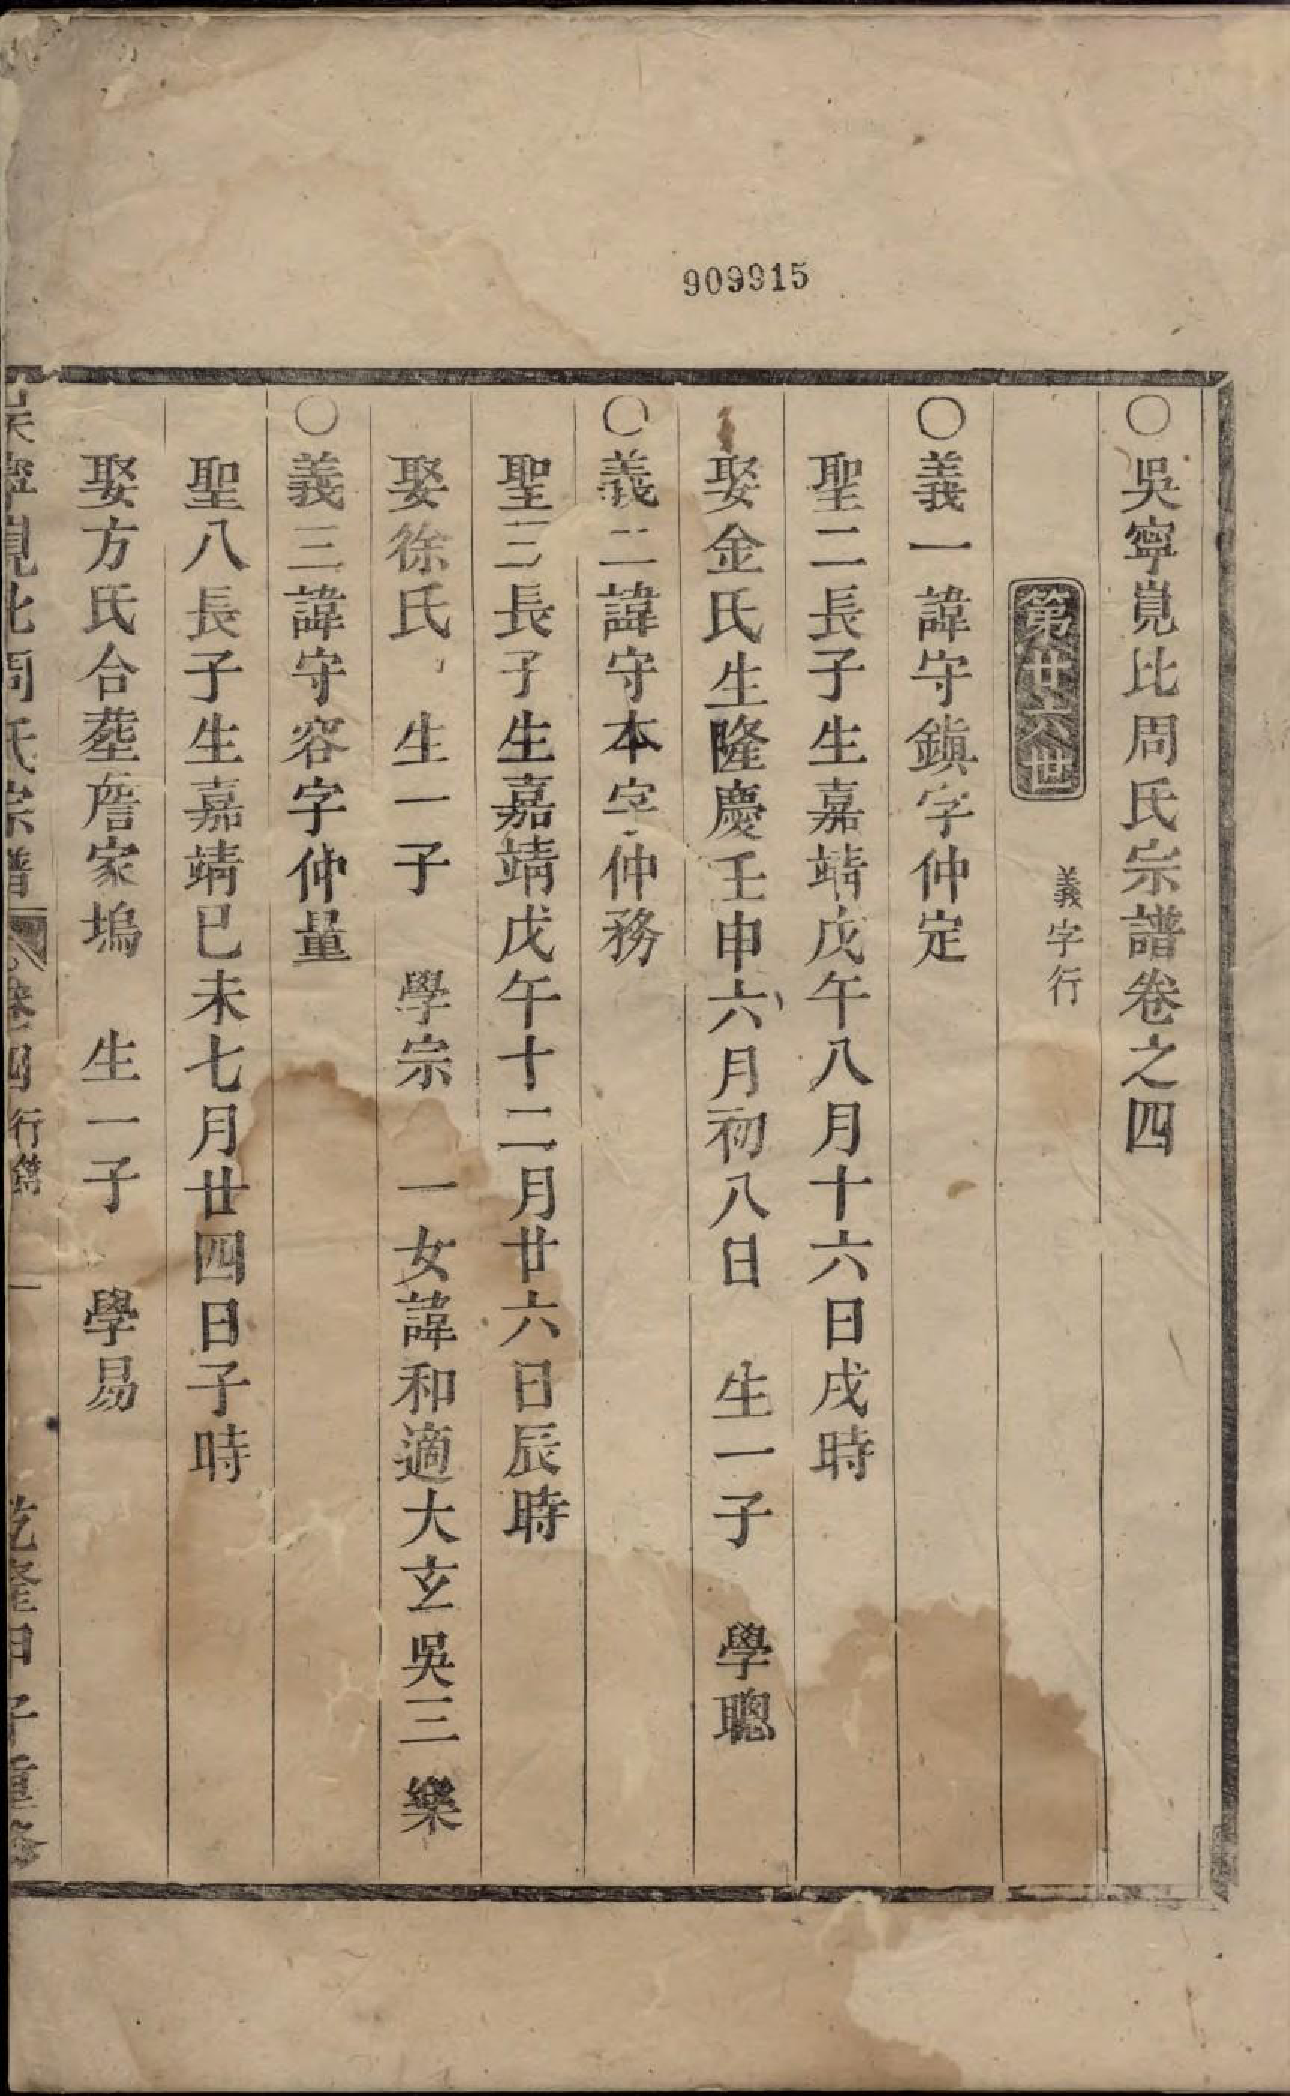 909915
○吳寧覓比周氏宗譜卷之四
第廿六世 義字行
○義一諱守鎮字仲定
聖二長子生嘉靖戊午八月十六日戌時
娶金氏生隆慶壬申六月初八日 生一子 學聰
○義二諱守本字仲務
聖三長子生嘉靖戊午十二月廿六日辰時
娶徐氏 生一子 學宗 一女諱和適大玄吳三樂
○義三諱守容字仲量
聖八長子生嘉靖已未七月廿四日子時
娶方氏合塟詹家塢 生一子 學易
周氏宗譜 卷四 行 一 乾隆甲子重修